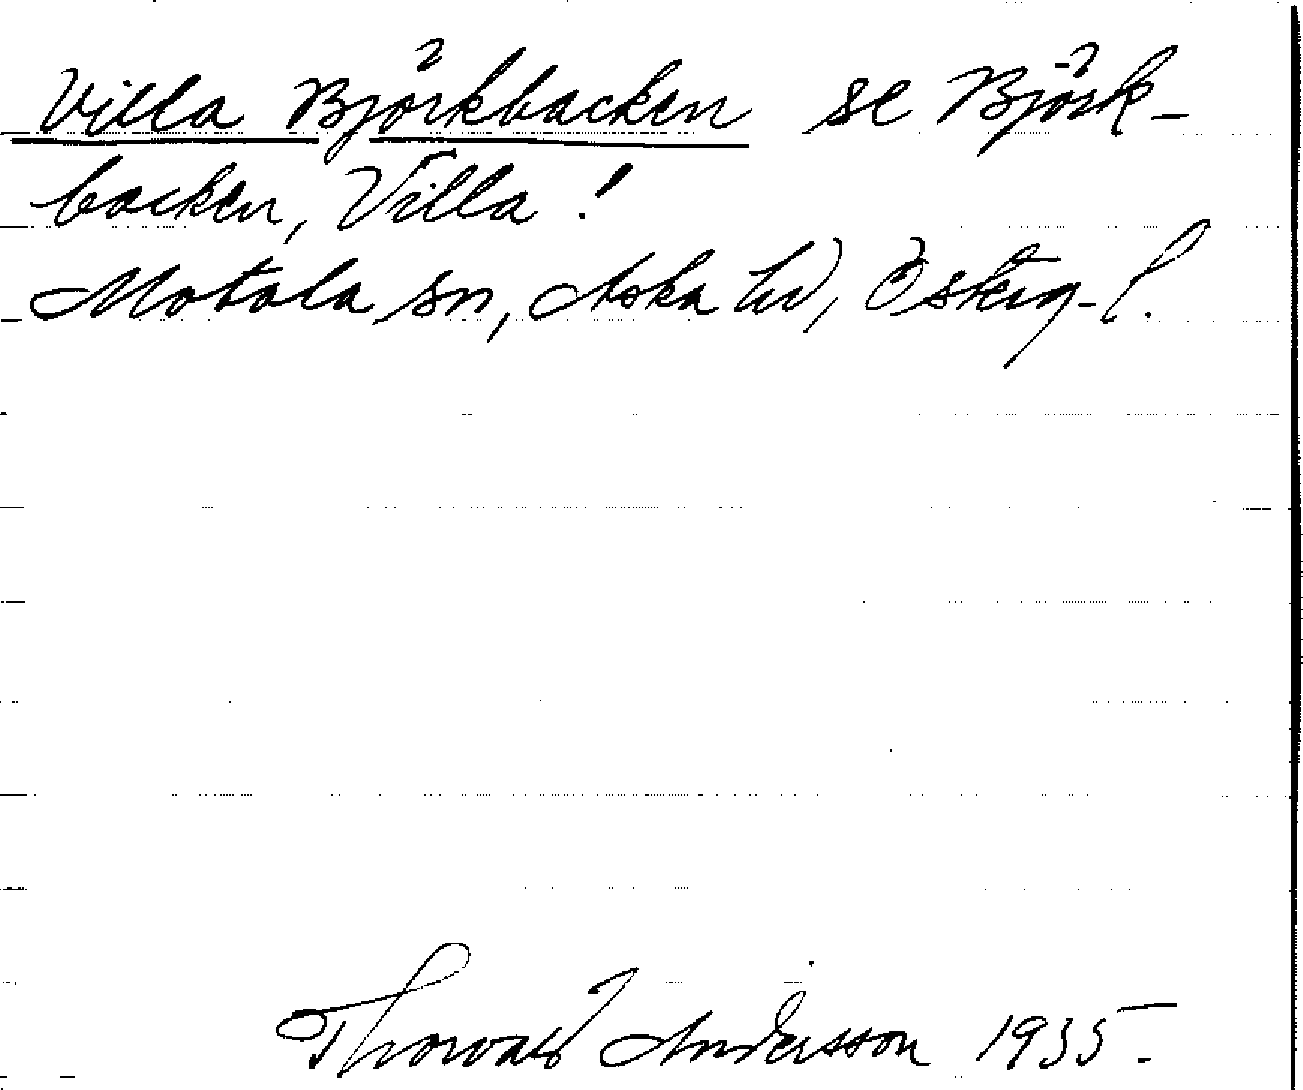 Villa Björkbacken se Björk-
backen, Villa!
Motala sn, Aska hd, Österg. l.
Thorvald Andersson 1935.